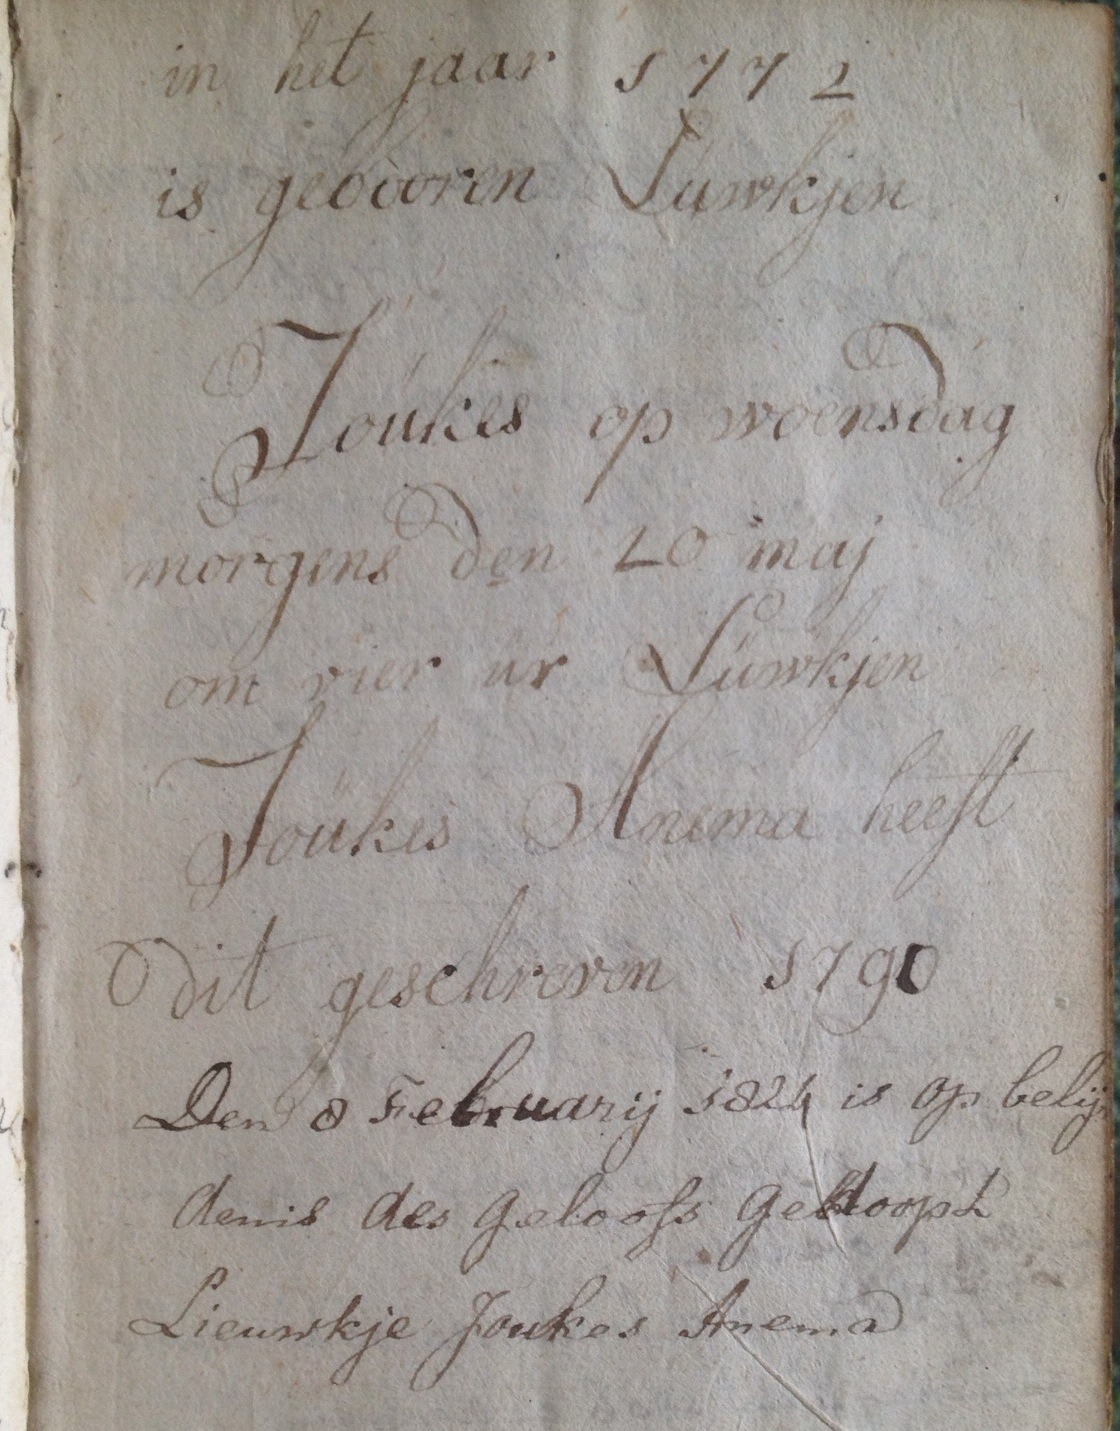 in het jaar 1772
is gebooren Luwkjen
Joukes op woensdag
morgens den 20 maj
om vier ur Luwkjen
Joukes Anema heeft
dit geschreven 1790
Den 8 Februarij 1824 is op belij
denis des geloofs gedoopt
Lieuwkje Joukes Anema